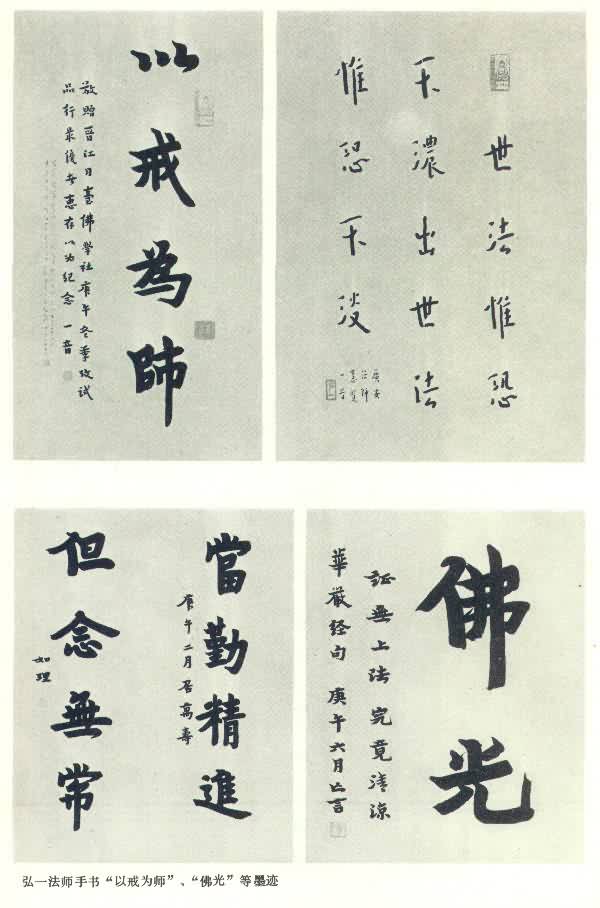 以戒為師
敬贈晋江月臺佛學社庚午冬季攷試
品行最優者惠存以為紀念 一音
世法惟恐
不濃出世法
惟恐不淡
一音
當勤精進
庚午二月居萬壽
但念無常
如理
佛光
証無上法究竟清涼
華嚴經句 庚午六月亡言
弘一法师手书“以戒为师”、“佛光”等墨迹